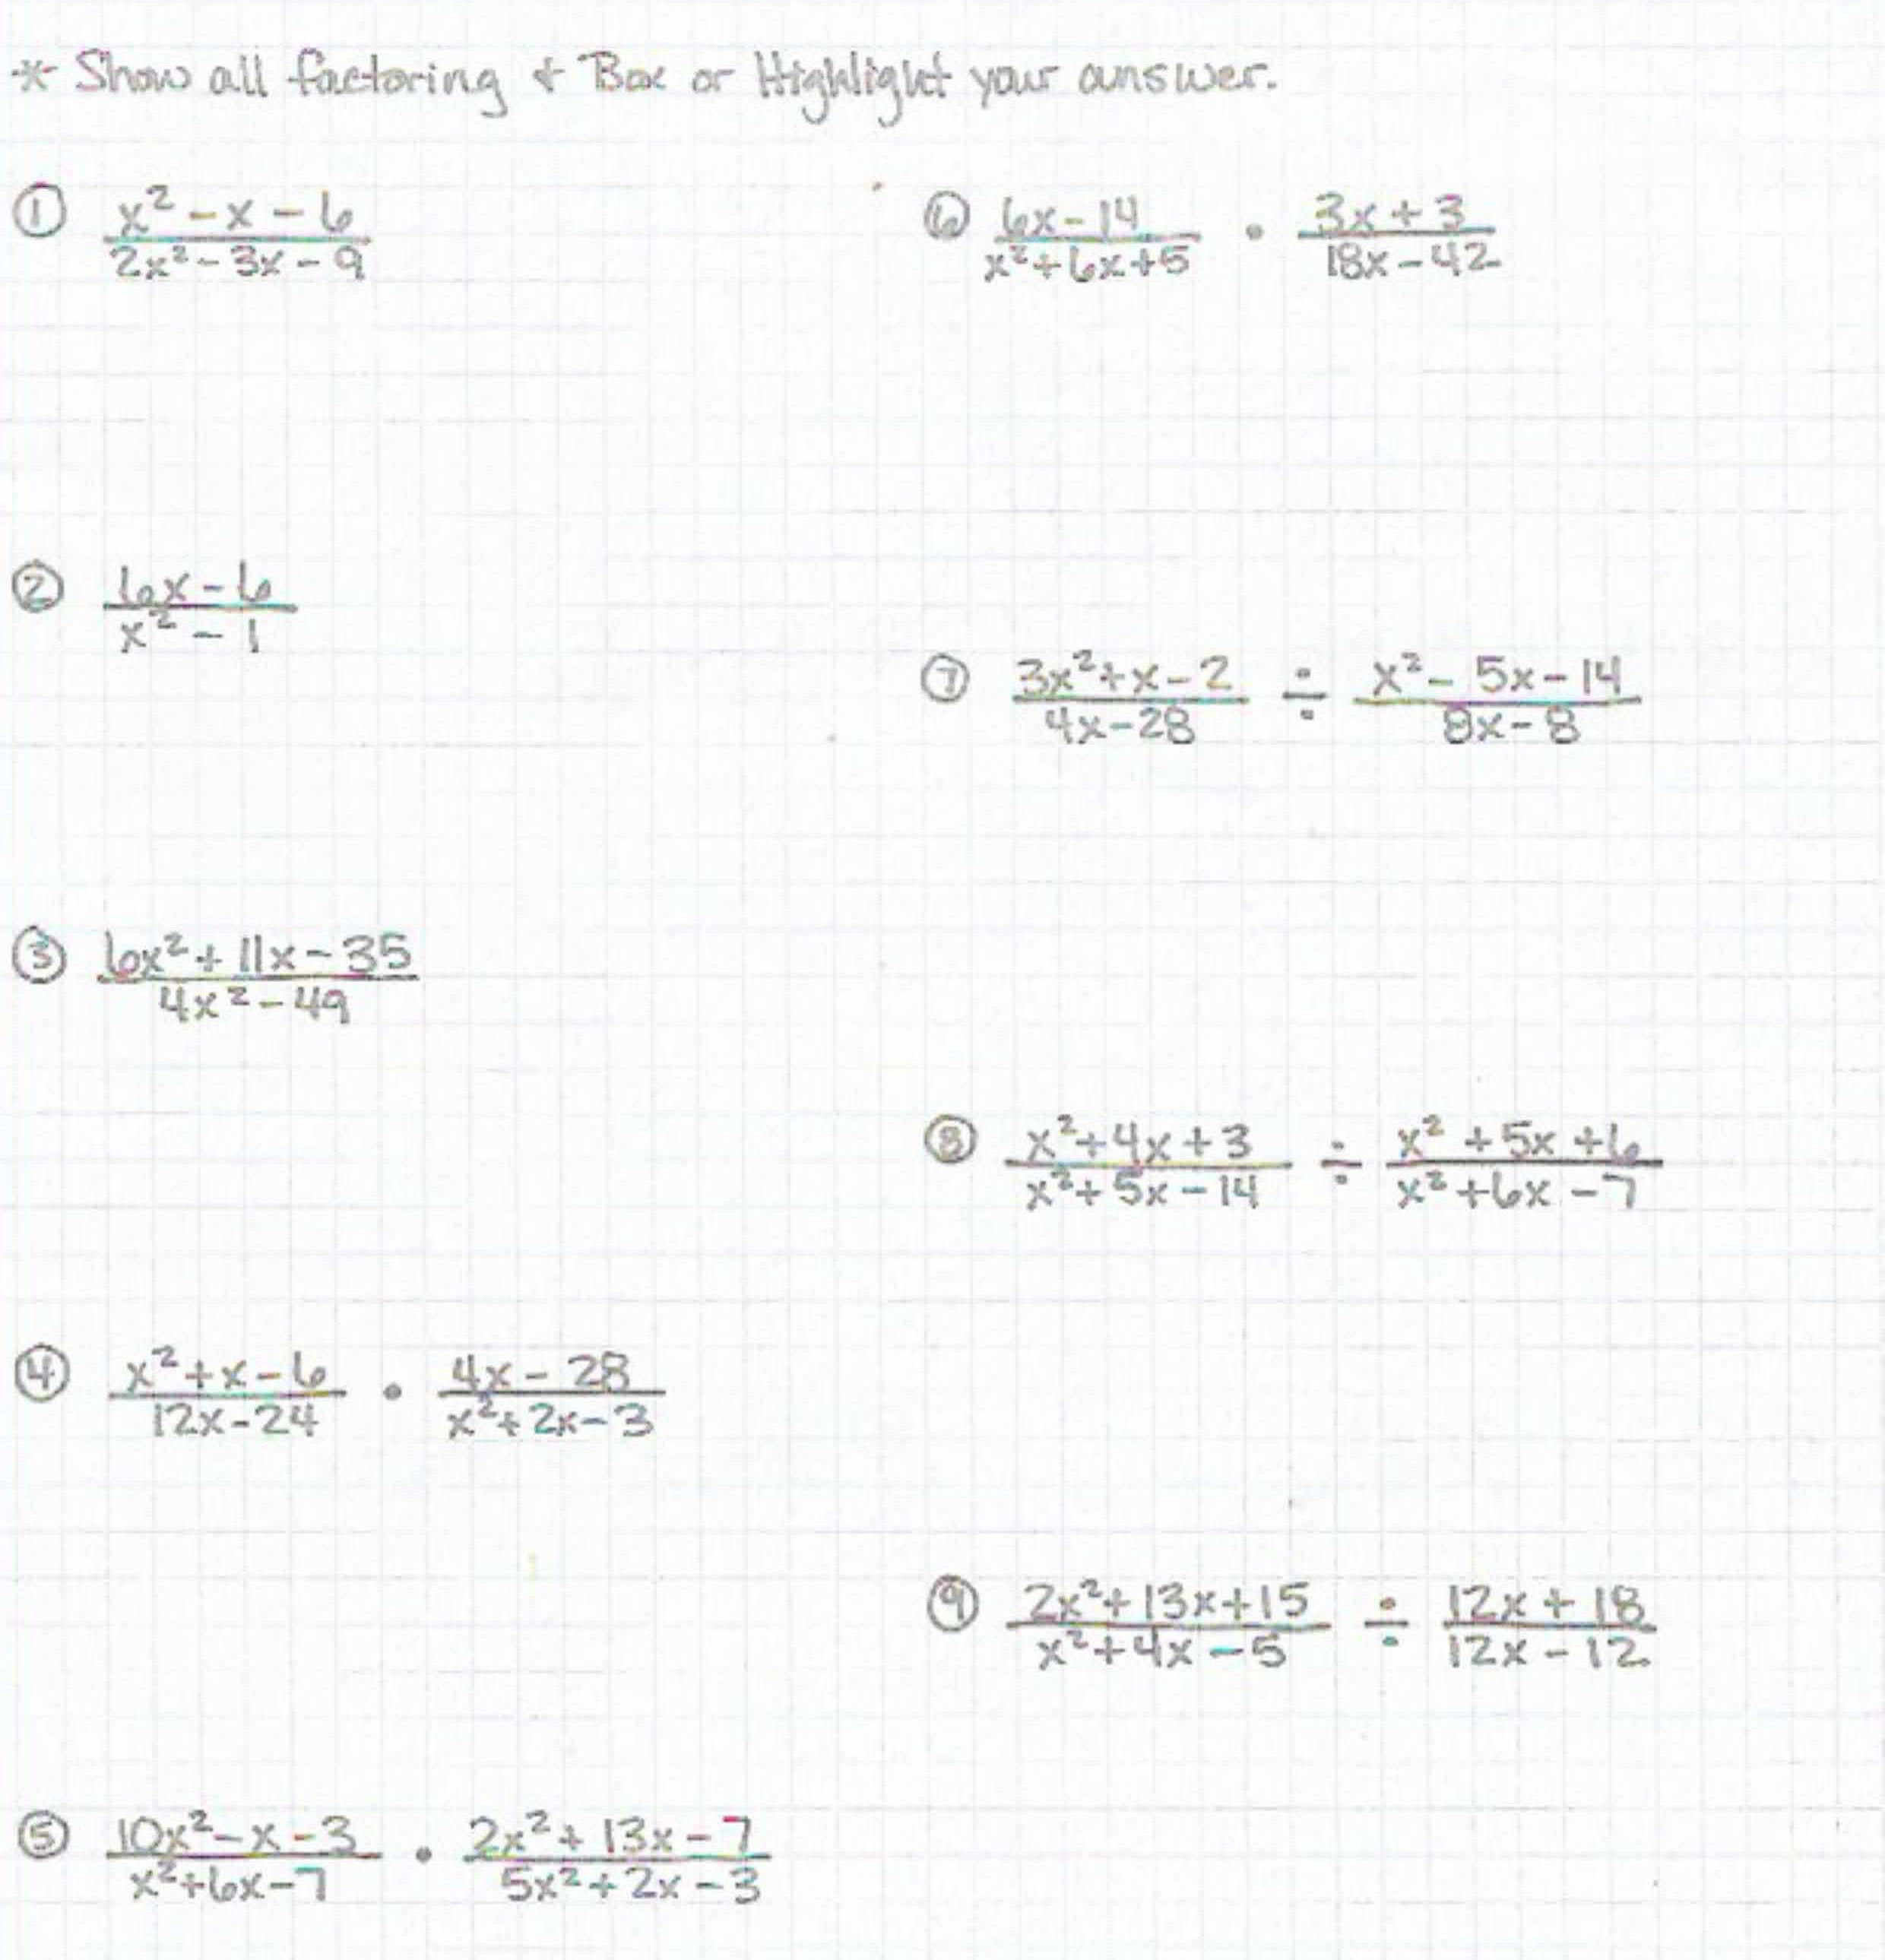 * Show all factoring & Box or Highlight your answer.
① x² - x - 6
2x² - 3x - 9
② 6x - 6
x² - 1
③ 6x² + 11x - 35
4x² - 49
④ x² + x - 6 • 4x - 28
12x - 24 x² + 2x - 3
⑤ 10x² - x - 3 • 2x² + 13x - 7
x² + 6x - 7 5x² + 2x - 3
⑥ 6x - 14 • 3x + 3
x² + 6x + 5 18x - 42
⑦ 3x² + x - 2 ÷ x² - 5x - 14
4x - 28 8x - 8
⑧ x² + 4x + 3 ÷ x² + 5x + 6
x² + 5x - 14 x² + 6x - 7
⑨ 2x² + 13x + 15 ÷ 12x + 18
x² + 4x - 5 12x - 12